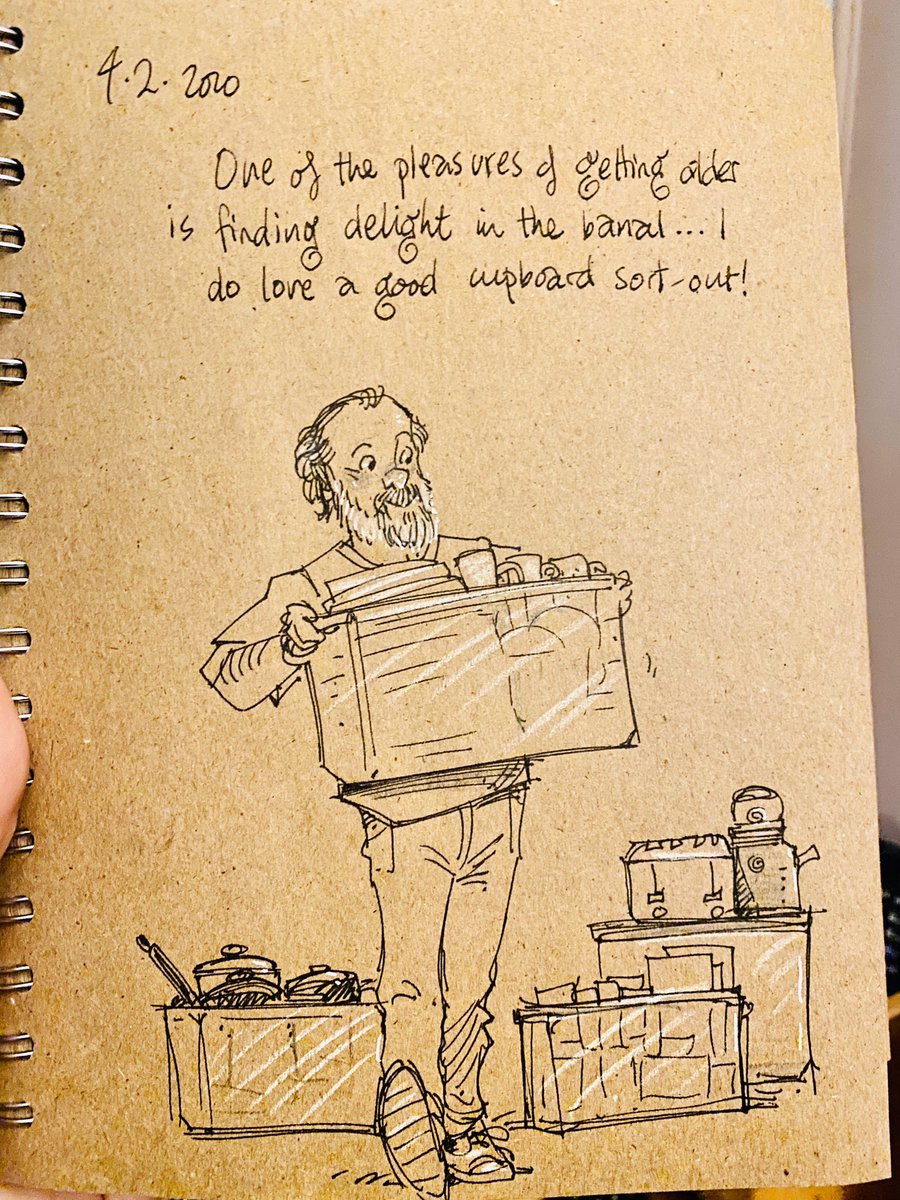 4.2.2020
One of the pleasures of getting older
is finding delight in the banal... I
do love a good cupboard sort-out!